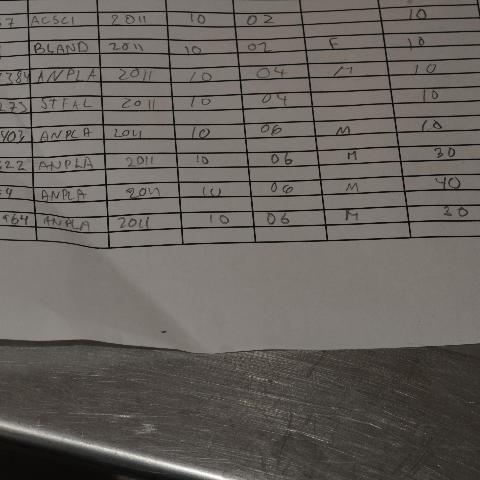 7 ACSCI 2011 10 02 10
BLAND 2011 10 02 F 10
1384 ANPLA 2011 10 04 M 10
273 STFAL 2011 10 04 10
803 ANPLA 2011 10 06 M 10
322 ANPLA 2011 10 06 M 30
4 ANPLA 2011 10 06 M 40
964 ANPLA 2011 10 06 M 30